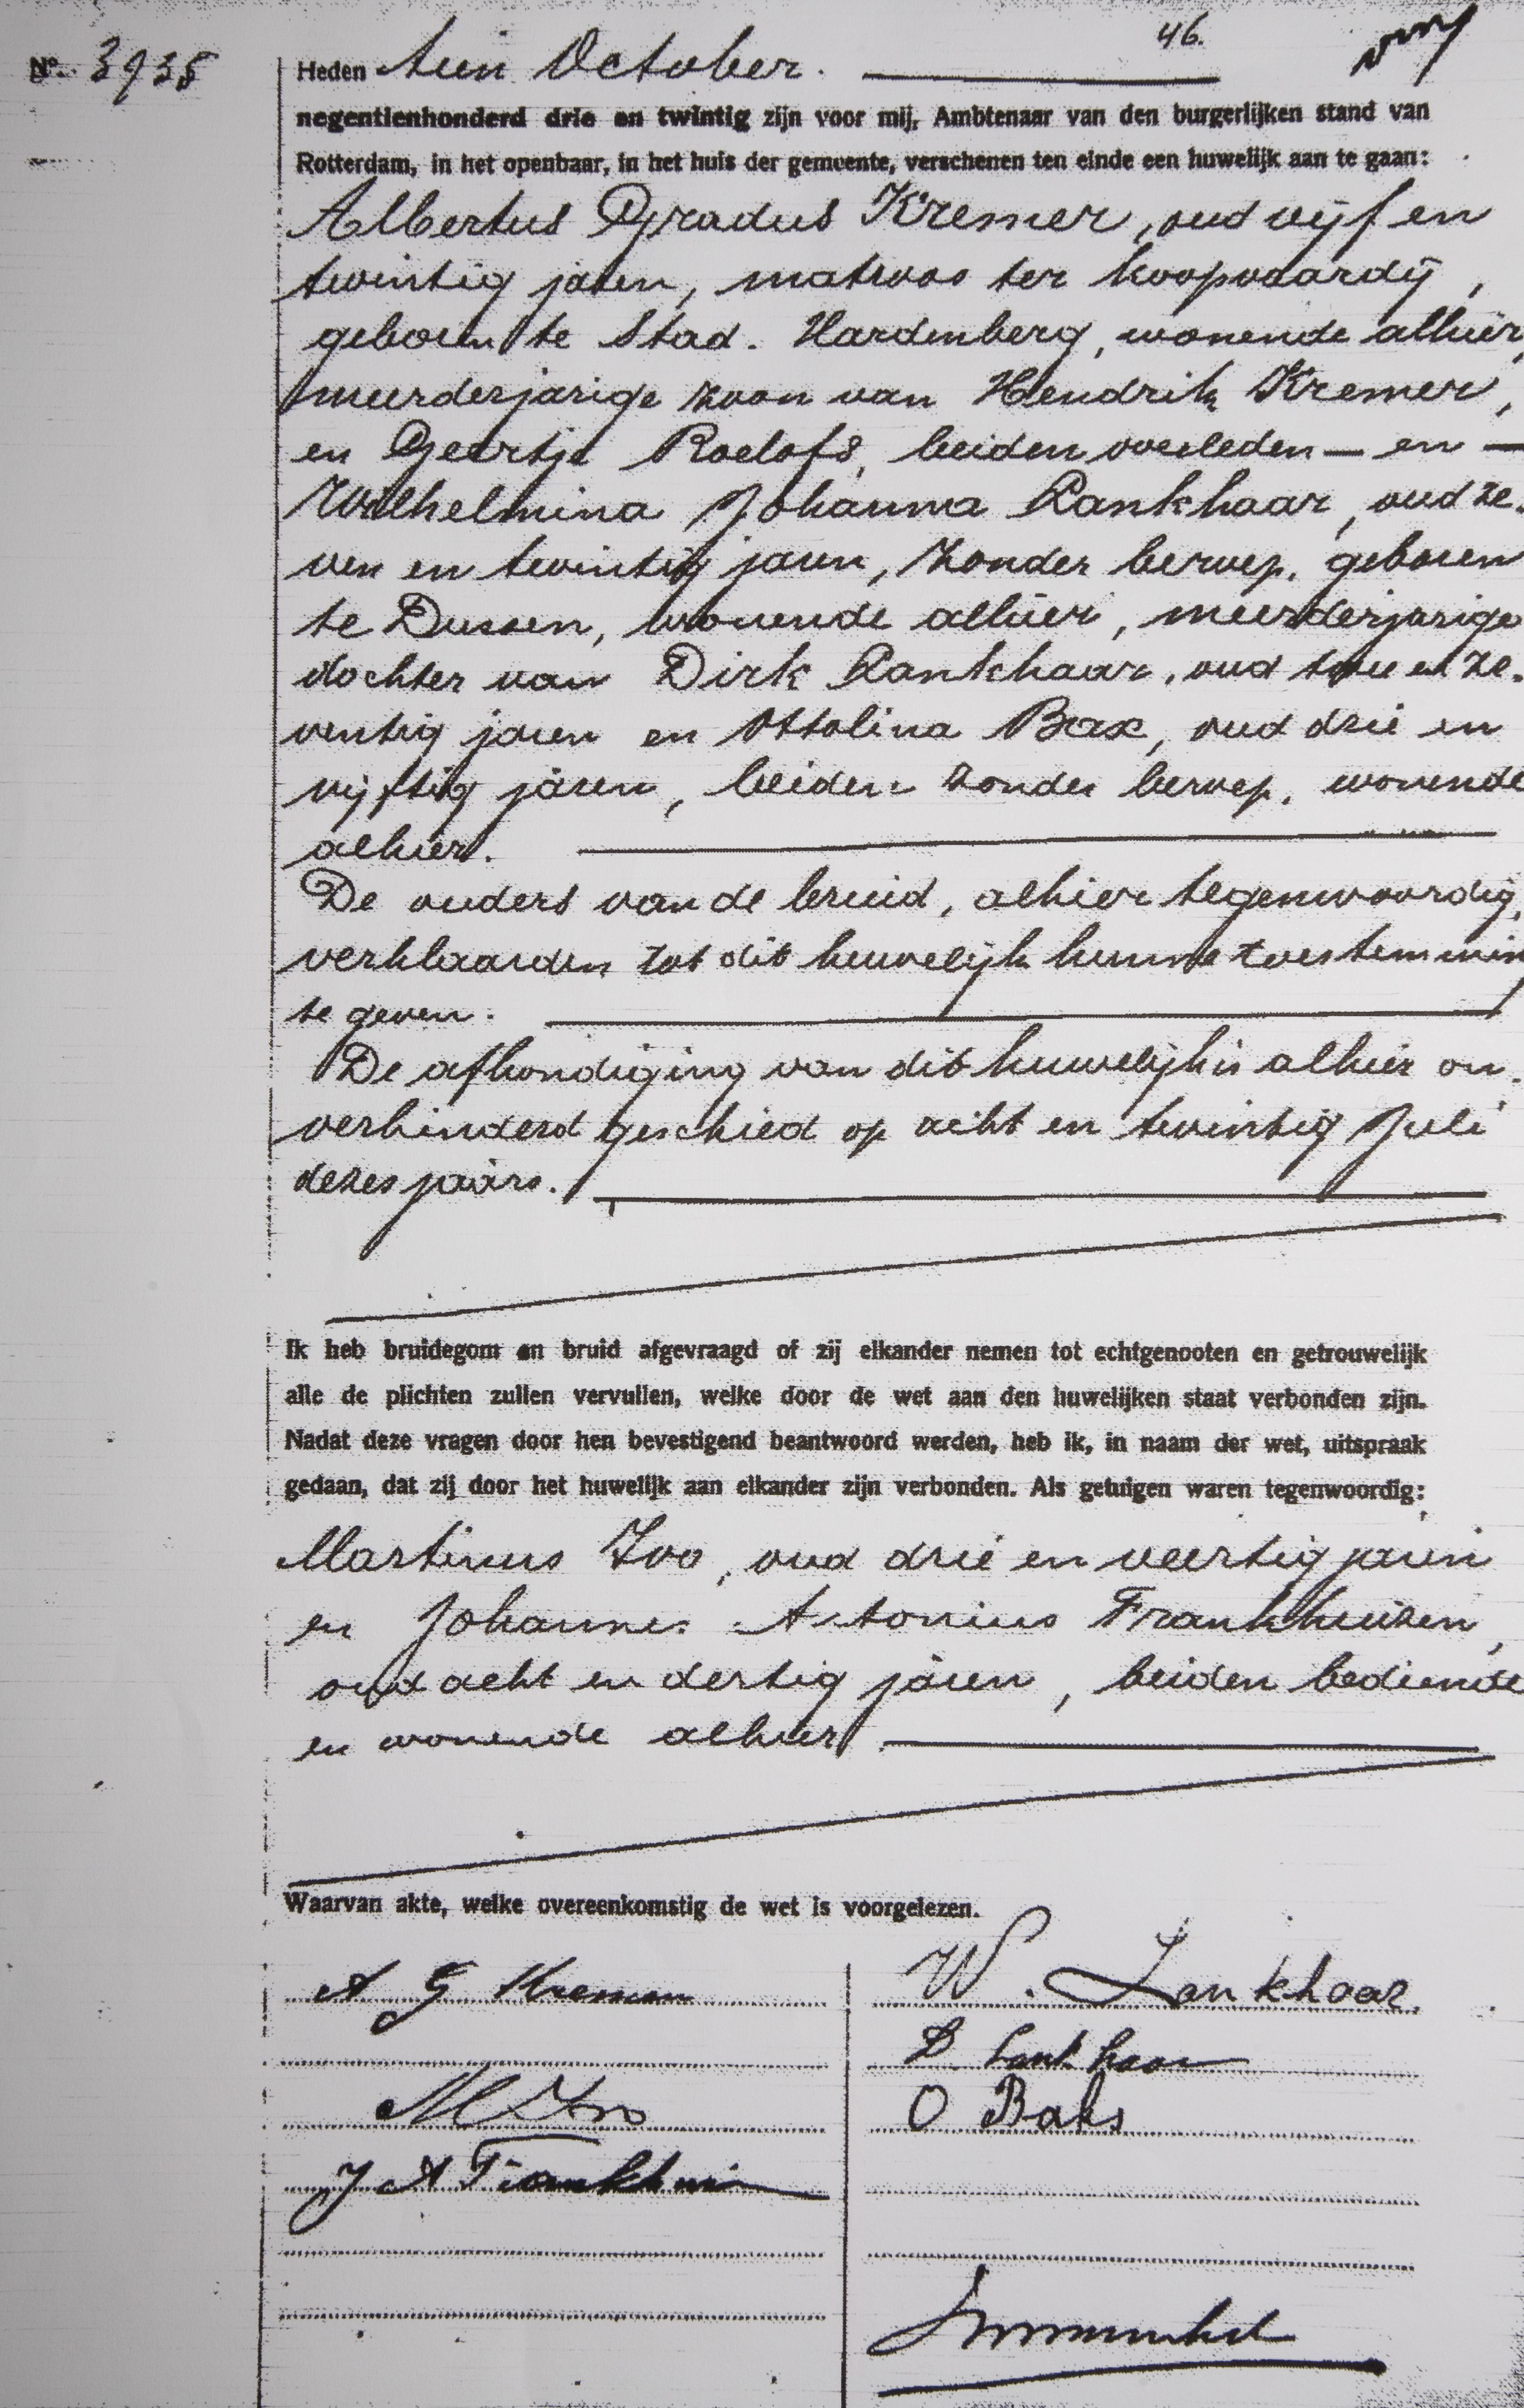 46.
No. 3935
Heden tien October.
negentienhonderd drie en twintig zijn voor mij, Ambtenaar van den burgerlijken stand van
Rotterdam, in het openbaar, in het huis der gemeente, verschenen ten einde een huwelijk aan te gaan:
Albertus Gradus Kremer, oud vijf en
twintig jaren, matroos ter koopvaardij,
geboren te Stad. Hardenberg, wonende alhier,
meerderjarige zoon van Hendrik Kremer,
en Geertje Roelofs, beiden overleden — en —
Wilhelmina Johanna Lankhaar, oud ze-
ven en twintig jaren, zonder beroep, geboren
te Dussen, wonende alhier, meerderjarige
dochter van Dirk Lankhaar, oud twee en ze-
ventig jaren en Ottolina Bax, oud drie en
vijftig jaren, beiden zonder beroep, wonende
alhier.
De ouders van de bruid, alhier tegenwoordig,
verklaarden tot dit huwelijk hunne toestemming
te geven.
De afkondiging van dit huwelijk is alhier on-
verhinderd geschied op acht en twintig Juli
dezes jaars.
Ik heb bruidegom en bruid afgevraagd of zij elkander nemen tot echtgenooten en getrouwelijk
alle de plichten zullen vervullen, welke door de wet aan den huwelijken staat verbonden zijn.
Nadat deze vragen door hen bevestigend beantwoord werden, heb ik, in naam der wet, uitspraak
gedaan, dat zij door het huwelijk aan elkander zijn verbonden. Als getuigen waren tegenwoordig:
Martinus Ivo, oud drie en veertig jaren
en Johannes Antonius Frankhuizen,
oud acht en dertig jaren, beiden bediende
en wonende alhier
Waarvan akte, welke overeenkomstig de wet is voorgelezen.
A G Kremer
W. Lankhaar.
D Lankhaar
M Ivo
O Baks
J A Frankhui